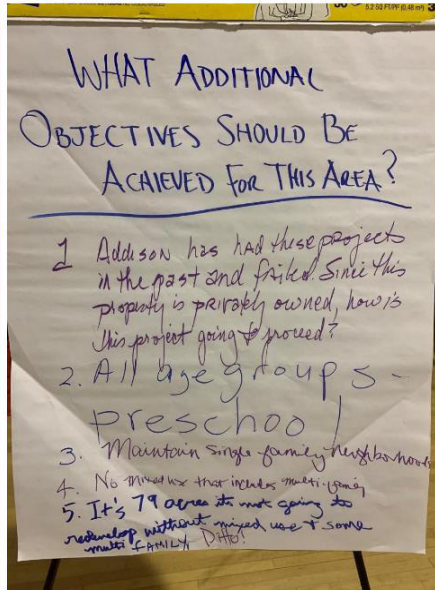 5.2 SQ FT/PF (0,48 m²)
WHAT ADDITIONAL
OBJECTIVES SHOULD BE
ACHIEVED FOR THIS AREA?
1 Addison has had these projects
in the past and failed. Since this
property is privately owned, how is
this project going to proceed?
2. All age groups -
preschool
3. Maintain single family neighborhoods
4. No mixed use that includes multi-family
5. It's 79 acres its not going to
redevelop without mixed use + some
multi FAMILY, DITTO!